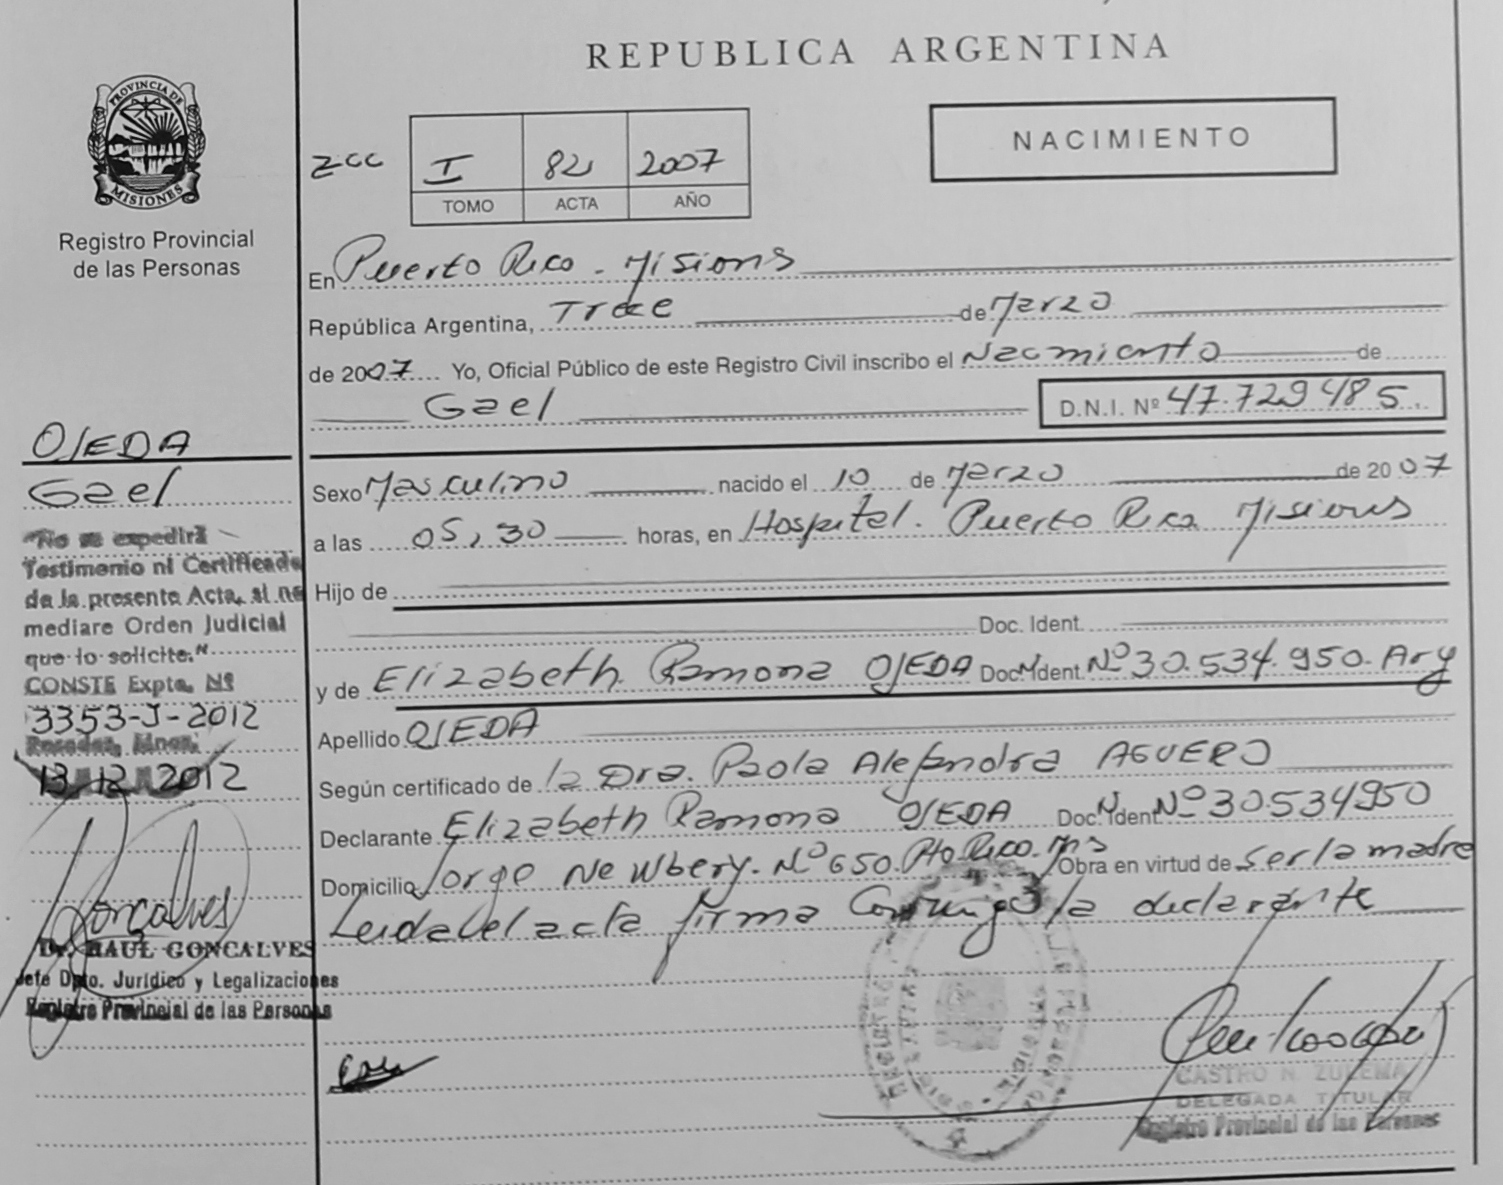 REPUBLICA ARGENTINA
PROVINCIA DE MISIONES
Registro Provincial
de las Personas
ZCC I 82 2007
TOMO ACTA AÑO
NACIMIENTO
En Puerto Rico - Misions
República Argentina, Trece de Marzo
de 2007 Yo, Oficial Público de este Registro Civil inscribo el Nacimiento de
Gael D.N.I. Nº 47.729485
Sexo Masculino nacido el 10 de Marzo de 2007
a las 05,30 horas, en Hospital. Puerto Rico Misions
Hijo de
Doc. Ident.
y de Elizabeth Ramona OJEDA Doc. Ident. Nº 30.534.950. Arg
Apellido OJEDA
Según certificado de la Dra. Paola Alejandra AGUERO
Declarante Elizabeth Ramona OJEDA Doc. Ident. Nº 30534950
Domicilio Jorge Newbery. Nº 650. Pto Rico. Mns Obra en virtud de ser la madre
Leida el acta firma Conmigo la declarante
CASTRO N. ZULEMA
DELEGADA TITULAR
Registro Provincial de las Personas
OJEDA
Gael
"No se expedirá
Testimonio ni Certificado
de la presente Acta, si no
mediare Orden Judicial
que lo solicite."
CONSTE Expte. Nº
3353-J-2012
Posadas, Mnes.
13 12 2012
Goncalves
Dr. RAUL GONCALVES
Jefe Dpto. Jurídico y Legalizaciones
Registro Provincial de las Personas